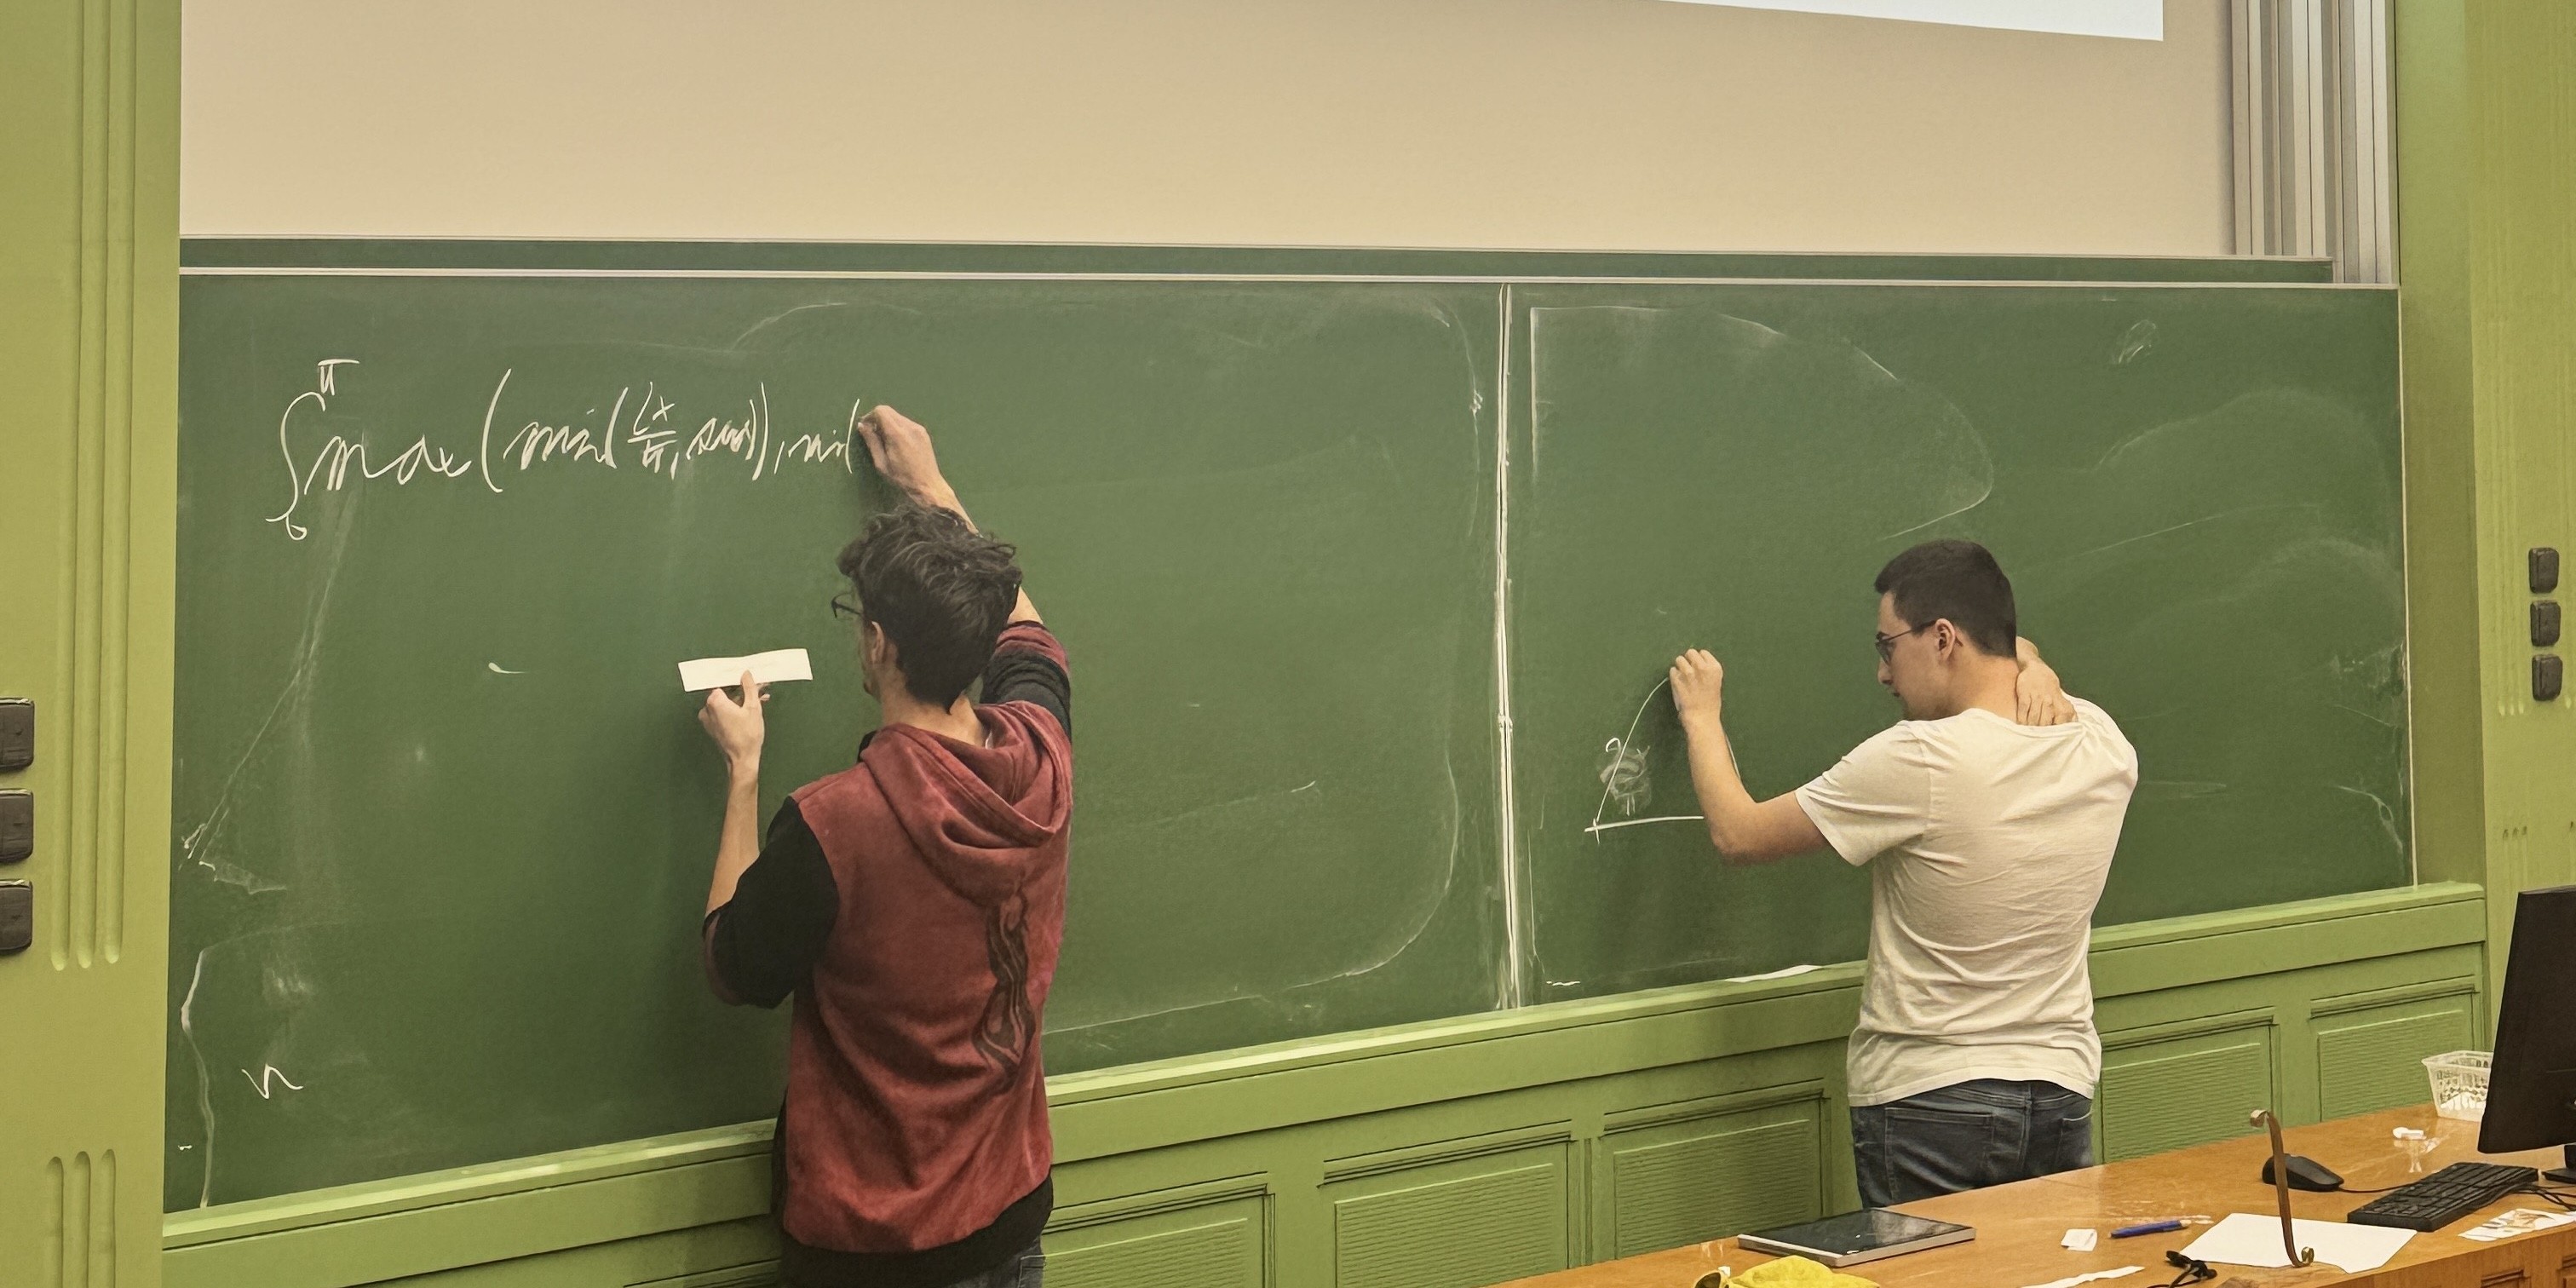 ∫₀^π max(min(2x/π, sin x), min(